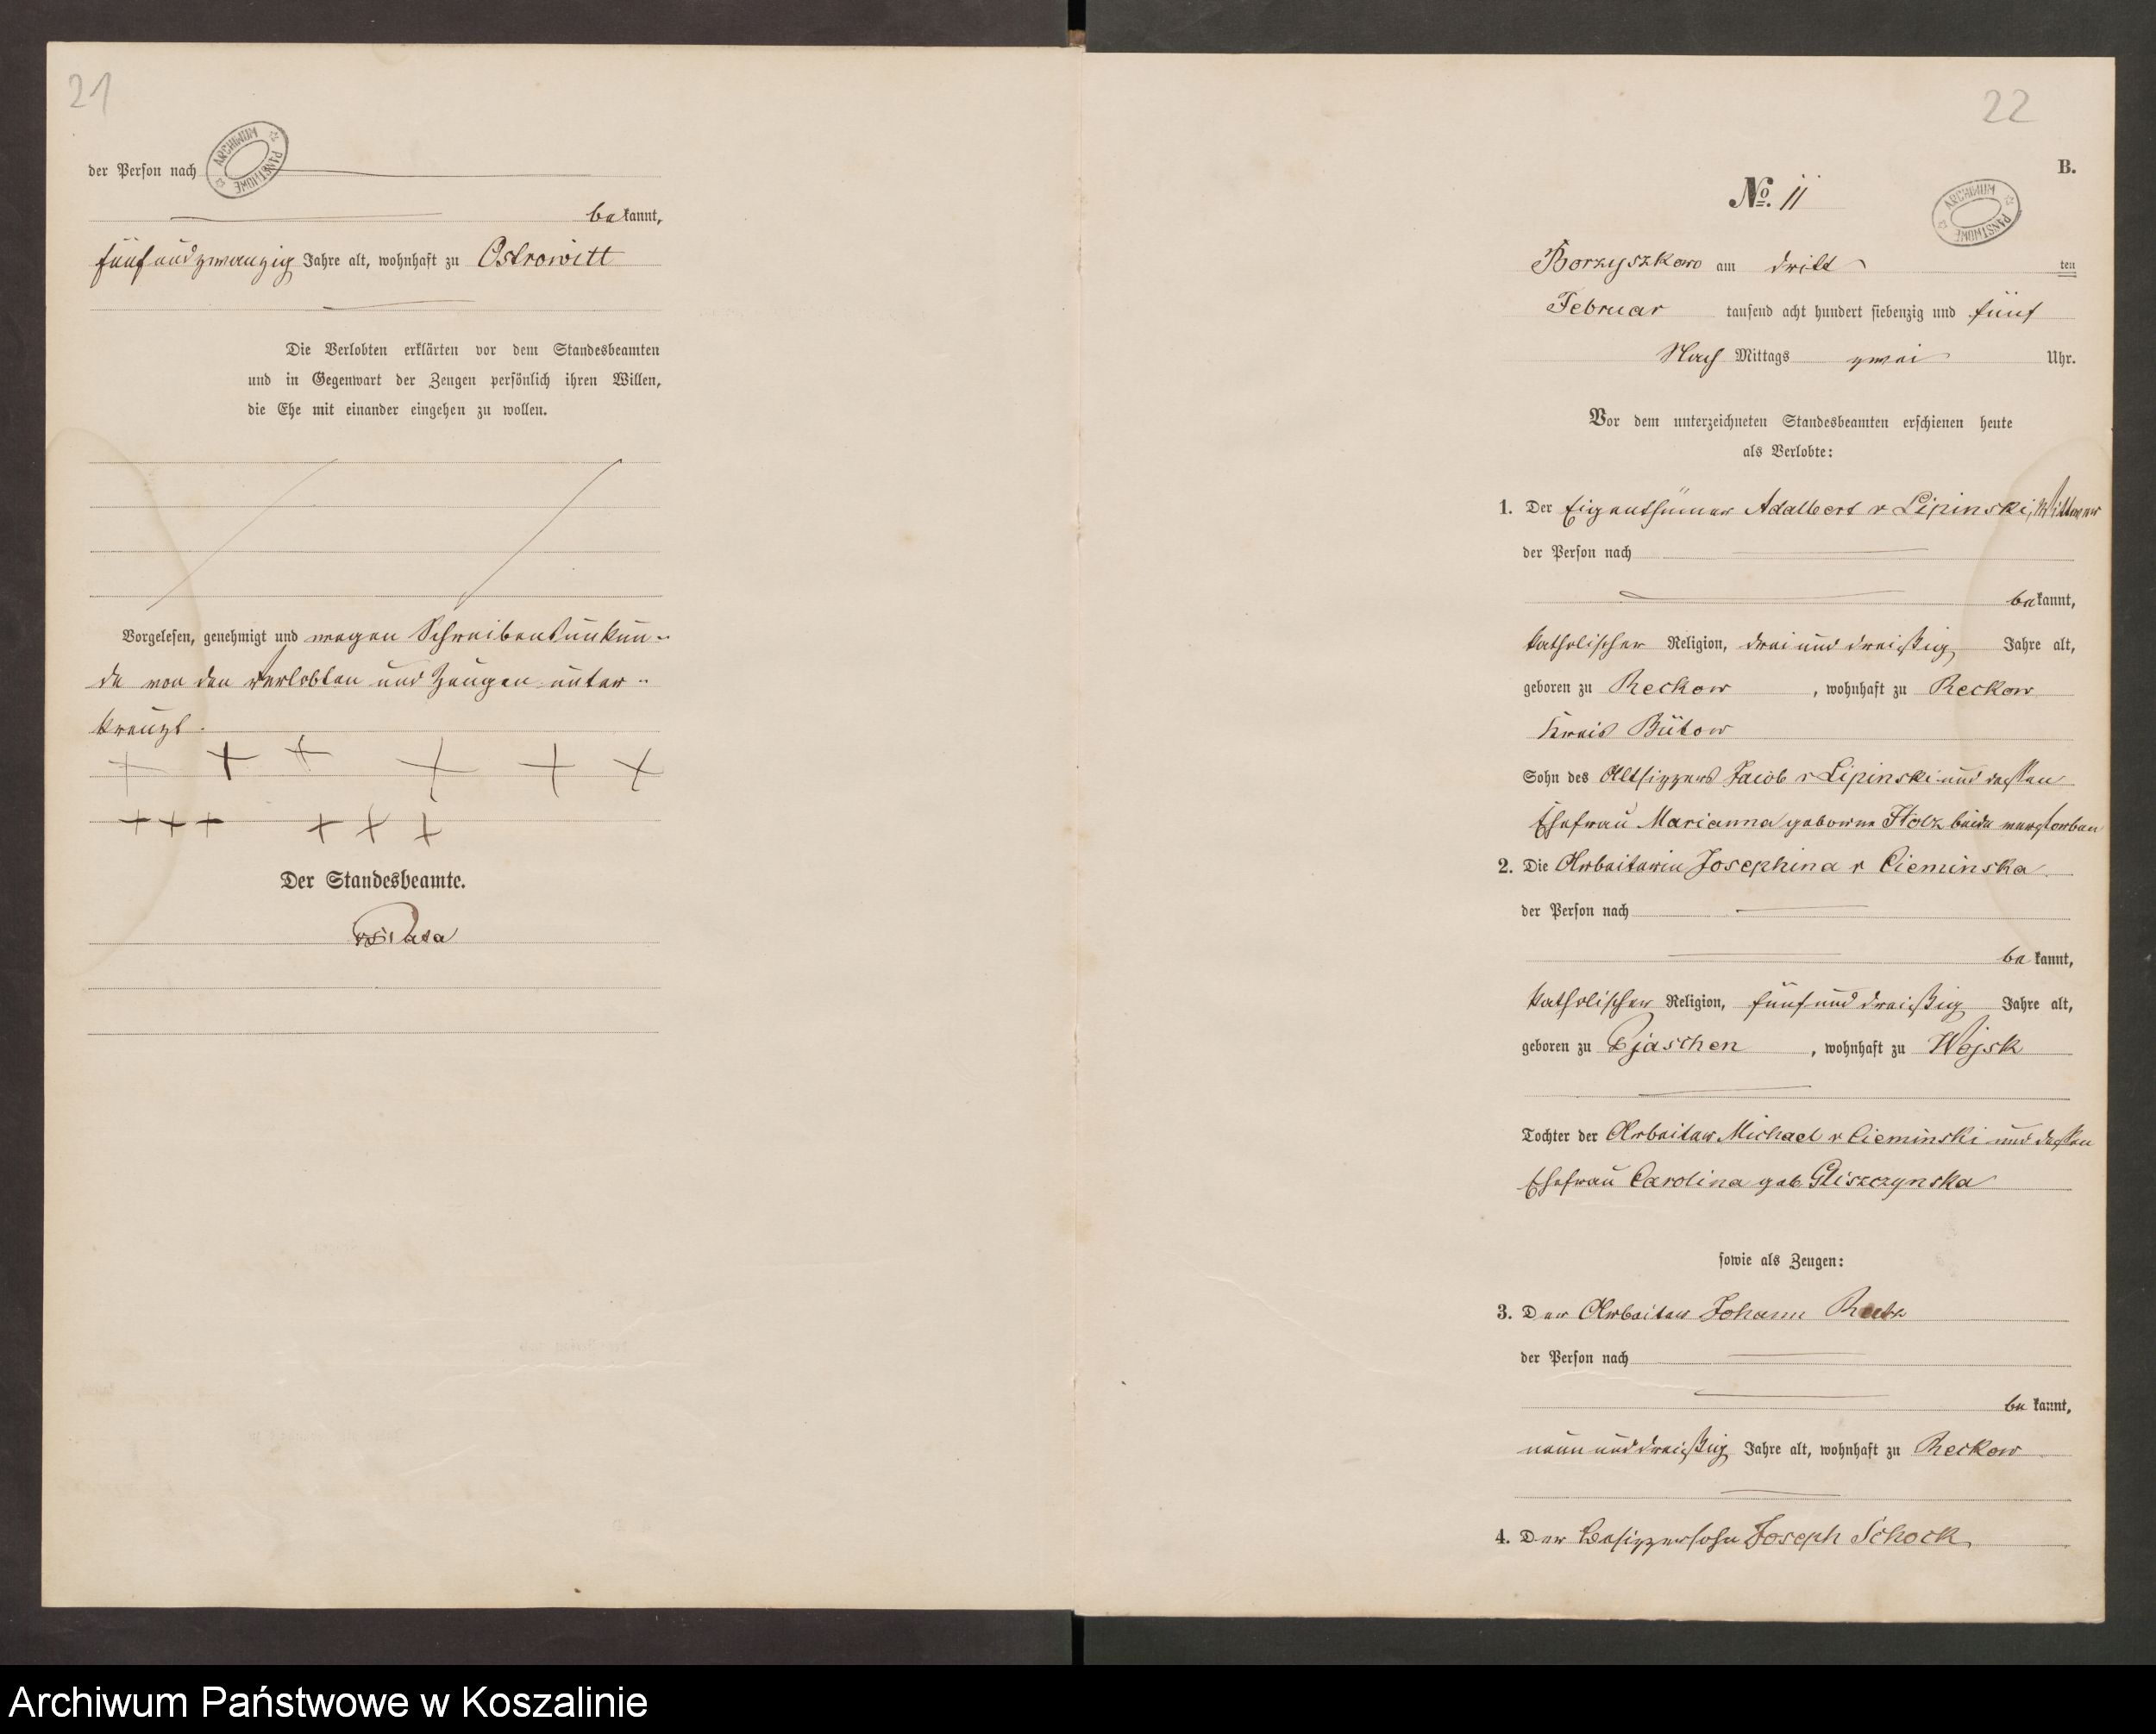 21
der Person nach
ARCHIWUM PAŃSTWOWE
bekannt,
fünfundzwanzig Jahre alt, wohnhaft zu Ostrowitt
Die Verlobten erklärten vor dem Standesbeamten
und in Gegenwart der Zeugen persönlich ihren Willen,
die Ehe mit einander eingehen zu wollen.
Vorgelesen, genehmigt und wegen Schreibensunkun-
de von den Verlobten und Zeugen unter-
kreuzt.
+ + + + + +
+++ + + +
Der Standesbeamte.
22
B.
No. 11
ARCHIWUM PAŃSTWOWE
Borzyszkowo am dritt ten
Februar tausend acht hundert siebenzig und fünf
Nach Mittags zwei Uhr.
Vor dem unterzeichneten Standesbeamten erschienen heute
als Verlobte:
1. Der Eigenthümer Adalbert v Lipinski, Wittwer
der Person nach
bekannt,
katholischer Religion, drei und dreißig Jahre alt,
geboren zu Reckow, wohnhaft zu Reckow
Kreis Bütow
Sohn des Altsitzers Jacob v Lipinski und dessen
Ehefrau Marianna geborne beide verstorben
2. Die Arbeiterin Josephina v Cieminska
der Person nach
bekannt,
katholischer Religion, fünf und dreißig Jahre alt,
geboren zu Pjaschen, wohnhaft zu Wojsk
Tochter der Arbeiter Michael v Cieminski und dessen
Ehefrau Carolina geb Gliszczynska
sowie als Zeugen:
3. Der Arbeiter Johann
der Person nach
bekannt,
neun und dreißig Jahre alt, wohnhaft zu Reckow
4. Der Besitzersohn Joseph Schock
Archiwum Państwowe w Koszalinie